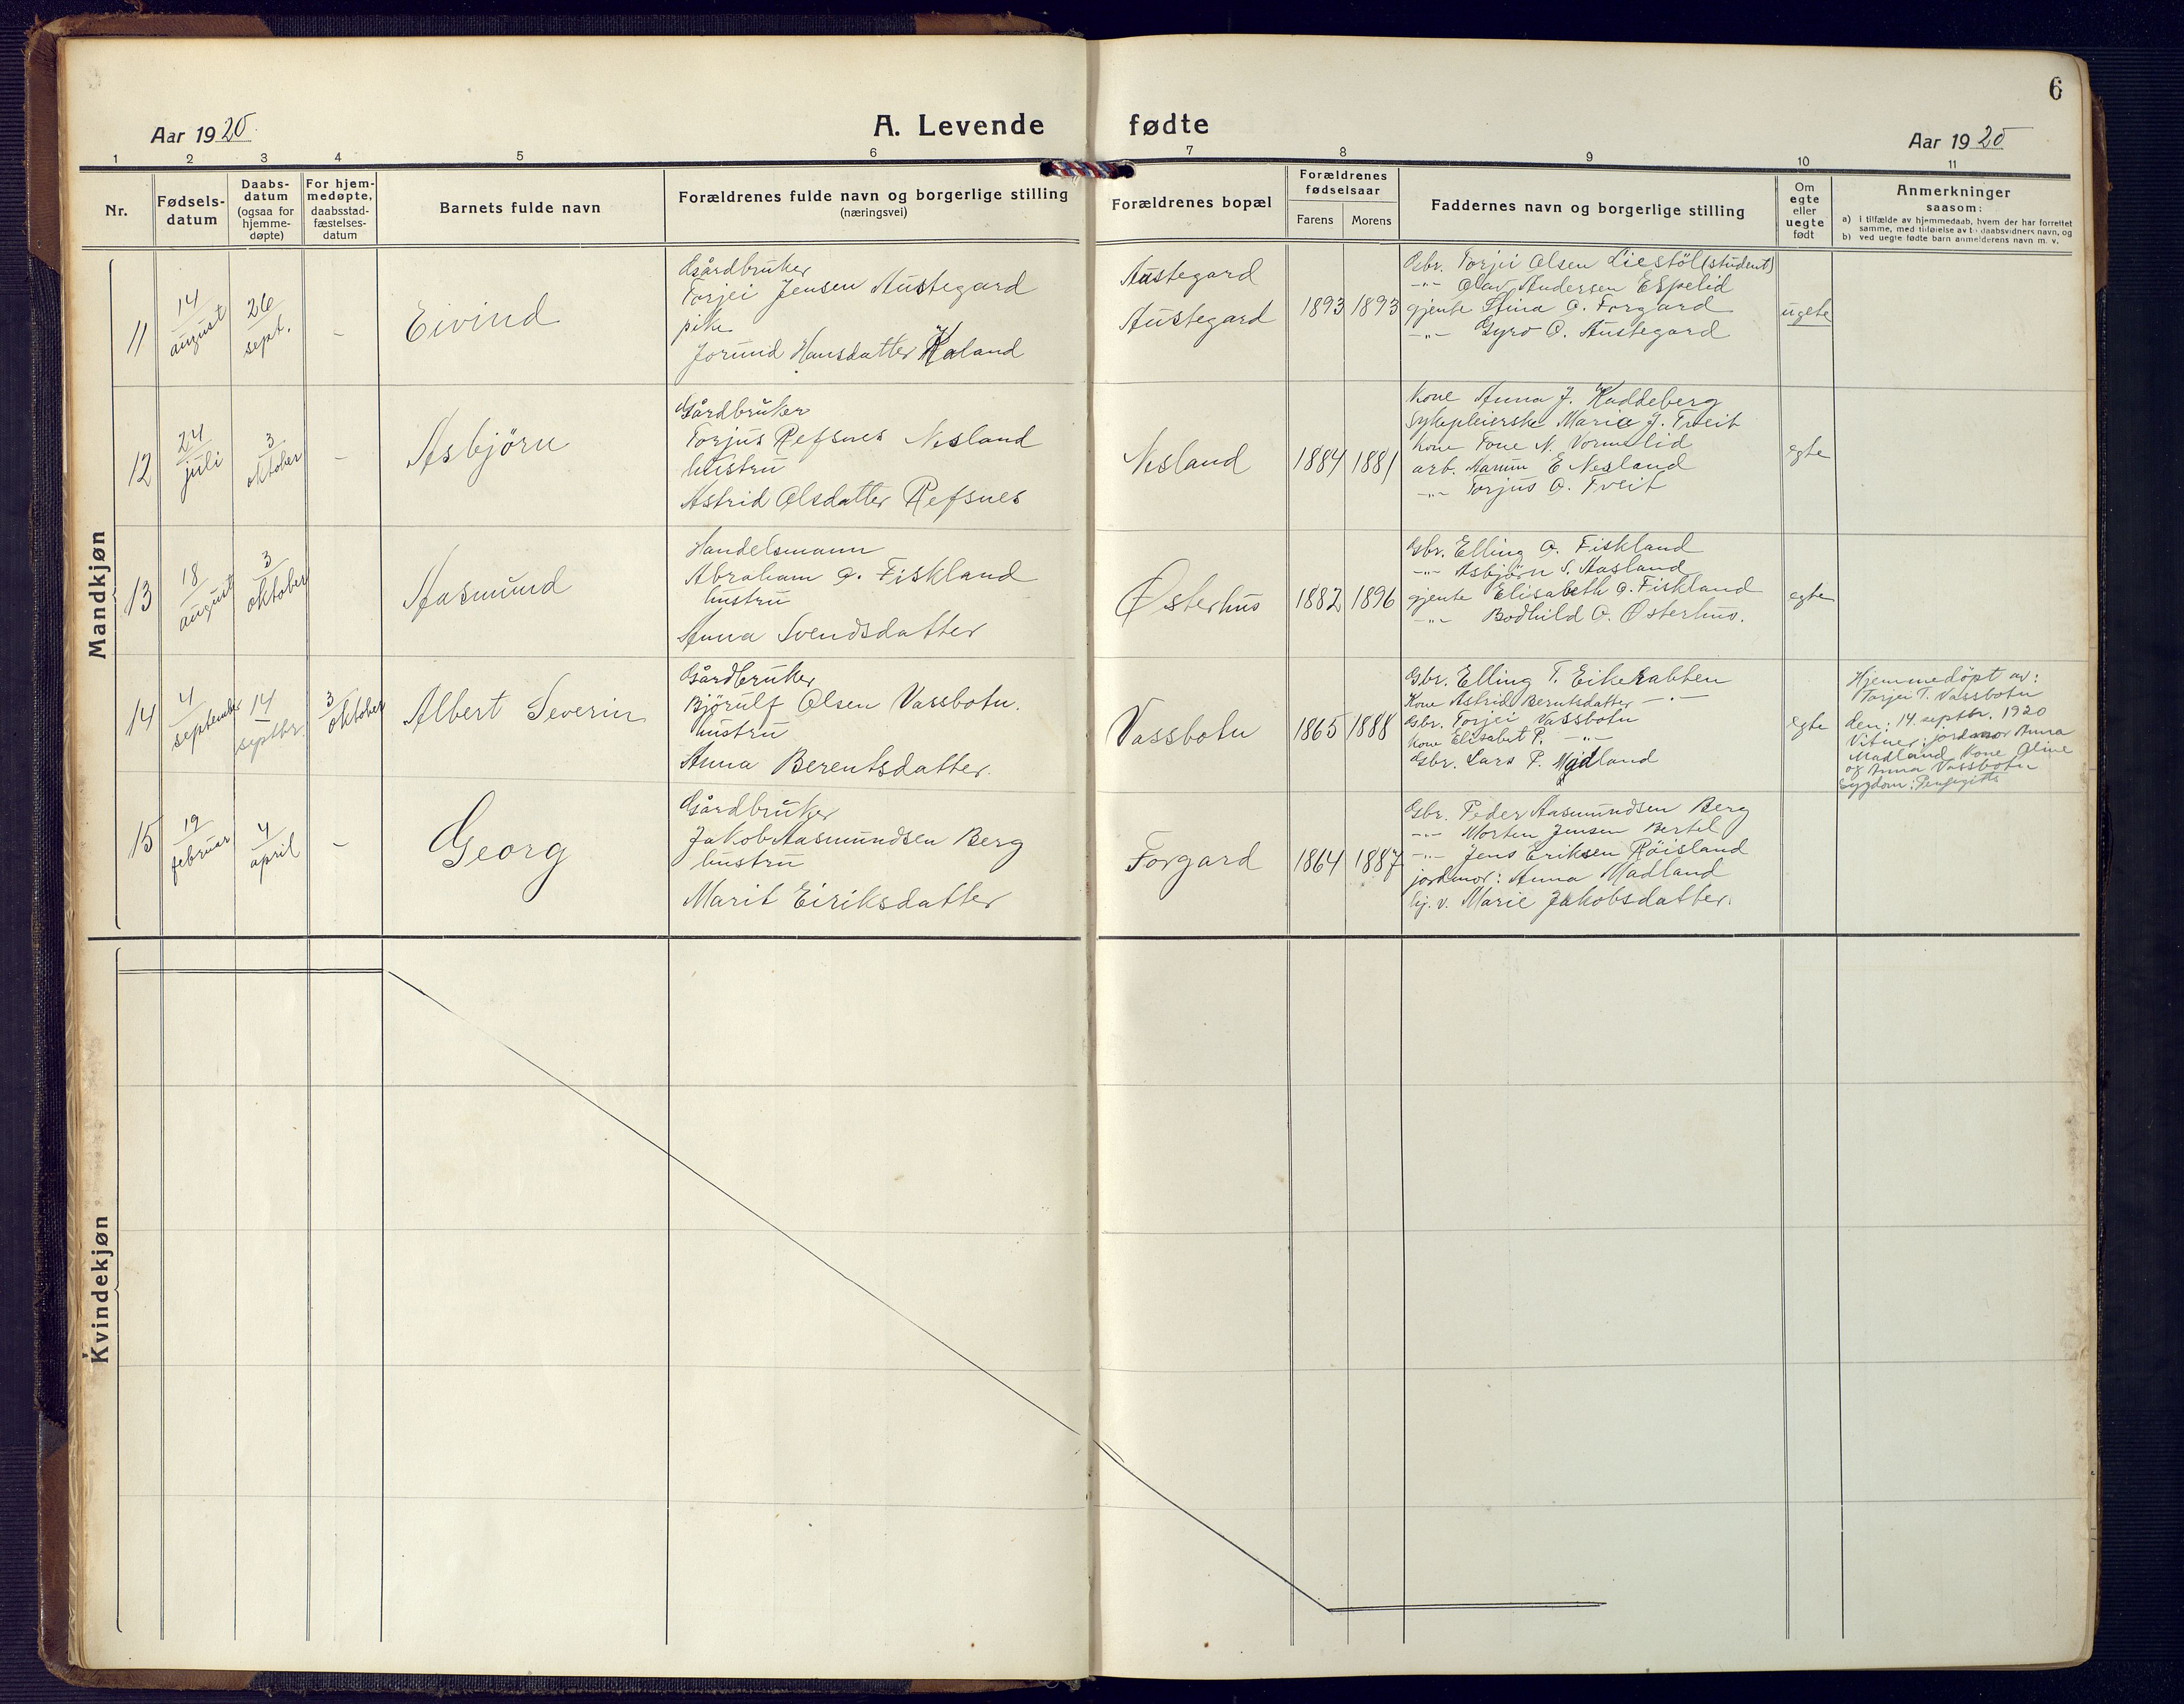 6
Aar 1920.
A. Levende fødte
Aar 1920
1 2 3 4 5 6 7 8 9 10 11
Nr.
Fødsels-
datum
Daabs-
datum
(ogsaa for
hjemme-
døpte)
For hjem-
medøpte,
daabsstad-
fæstelses-
datum
Barnets fulde navn
Forældrenes fulde navn og borgerlige stilling
(næringsvei)
Forældrenes bopæl
Forældrenes
fødselsaar
Farens Morens
Faddernes navn og borgerlige stilling
Om
egte
eller
uegte
født
Anmerkninger
saasom:
a) i tilfælde av hjemmedaab, hvem der har forrettet
samme, med tilføielse av to daabsvidners navn, og
b) ved uegte fødte barn anmelderens navn m. v.
Mandkjøn
11
14
august
26
sept.
-
Eivind
Gårdbruker
Torjei Jensen Austegard
pike
Jorund Hansdatter Kaland
Austegard
Austegard
1893 1893
Gbr. Torjei Olsen Liestöl (student)
-"- Olav Andersen Espelid
gjente Stina O. Forgard
-"- Gyro O. Austegard
uegte
12
24
juli
3
oktober
-
Asbjørn
Gårdbruker
Torjus Refsnes Nesland
hustru
Astrid Olsdatter Refsnes
Nesland
1884 1881
Kone Anna J. Kaddeberg
Sykepleierske Maria J. Tveit
Kone Tone N. Vormelid
arb. E Nesland
-"- Torjus O. Tveit
egte
13
18
august
3
oktober
Aasmund
Handelsmann
Abraham O. Fiskland
hustru
Anna Svendsdatter
Østerhus
1882 1896
Gbr. Elling O. Fiskland
-"- Asbjörn S. Aasland
gjente Elisabeth O. Fiskland
-"- Bodhild O. Østerhus.
egte
14
4
september
14
septbr.
3
oktober
Albert Severin
Gårdbruker
Bjørulf Olsen Vassbotn.
hustru
Anna Berentsdatter.
Vassbotn
1865 1888
Gbr. Elling T. Eikerabben
Kone Astrid Berntsdatter -"-
Gbr. Torjei Vassbotn
Kone Elisabet P. -"-
Gbr. Lars P. Mydland
egte
Hjemmedöpt av:
Torjei T. Vassbotn
den: 14. septbr. 1920
Vitner: jordmor Anna
Madland, Kone Oline
og Anna Vassbotn
Sygdom:
15
19
februar
4
april
-
Georg
Gårdbruker
Jakob Aasmundsen Berg
hustru
Marit Eiriksdatter
Forgard
1864 1887
Gbr. Peder Aasmundsen Berg
-"- Morten Jensen Bertel
-"- Jens Eriksen Röisland
jordmor: Anna Madland
hj. v. Marie Jakobsdatter.
Kvindekjøn